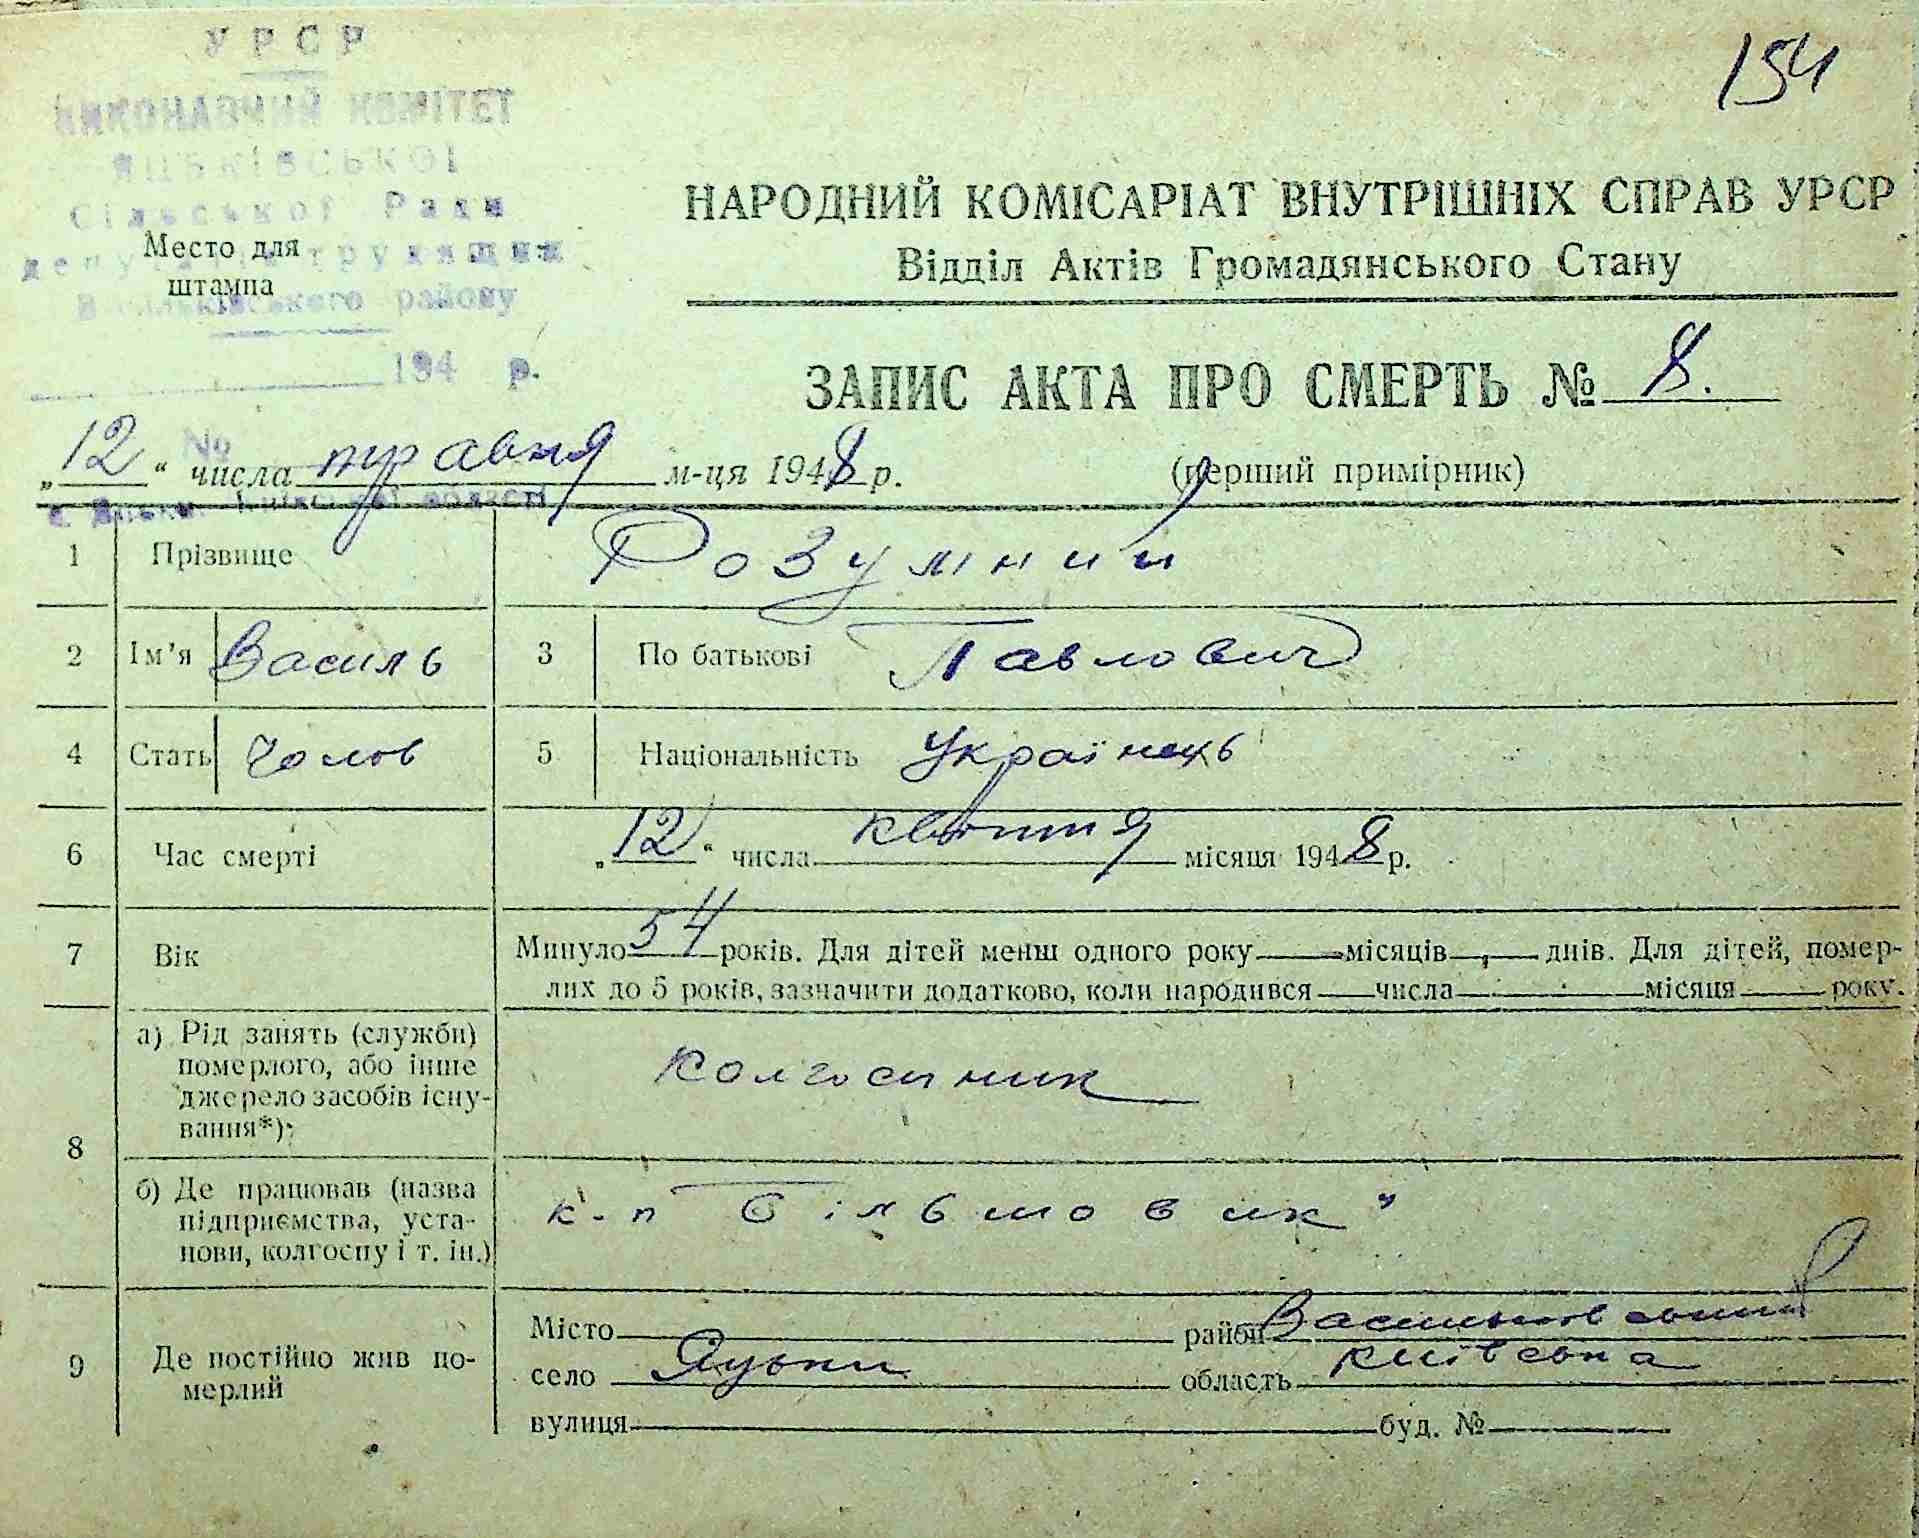 154
УРСР
ВИКОНАВЧИЙ КОМІТЕТ
ЯЦЬКІВСЬКОЇ
Сільської Ради
депутатів трудящих
Васильківського району
194 р.
№
с. Яцьки, Київської області
Место для
штампа
НАРОДНИЙ КОМІСАРІАТ ВНУТРІШНІХ СПРАВ УРСР
Відділ Актів Громадянського Стану
ЗАПИС АКТА ПРО СМЕРТЬ № 8.
„12“ числа травня м-ця 1948 р. (перший примірник)
1 Прізвище Розумний
2 Ім'я Василь 3 По батькові Павлович
4 Стать Чолов 5 Національність Українець
6 Час смерті „12“ числа квітня місяця 1948 р.
7 Вік Минуло 54 років. Для дітей менш одного року місяців, днів. Для дітей, помер-
лих до 5 років, зазначити додатково, коли народився числа місяця року.
8 а) Рід занять (служби)
померлого, або інше
джерело засобів існу-
вання*): колгоспник
б) Де працював (назва
підприємства, уста-
нови, колгоспу і т. ін.) к-п Більшовик"
9 Де постійно жив по-
мерлий
Місто район Васильковський
село Яцьки область Київська
вулиця буд. №